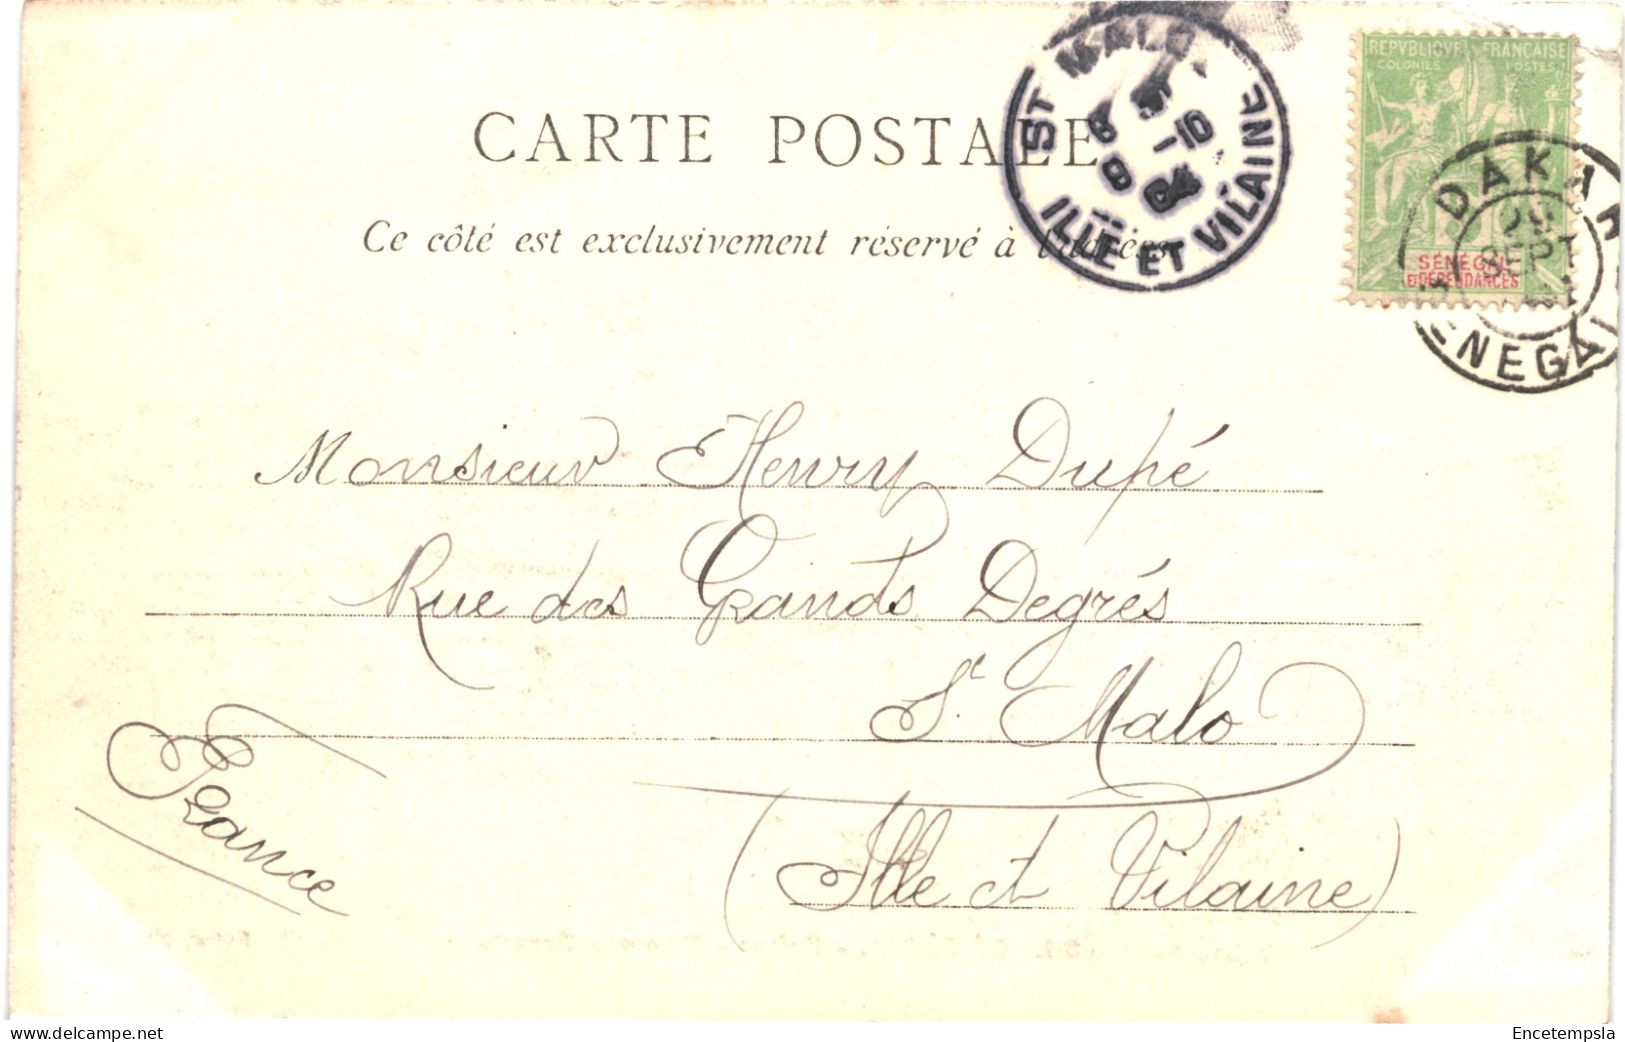 CARTE POSTALE
Ce côté est exclusivement réservé à l'adresse
ST MALO
8 5
8 -10
04
ILLE ET VILAINE
REPVBLIQVE FRANÇAISE
COLONIES POSTES
SÉNÉGAL
ET DÉPENDANCES
DAKAR
SEPT
SENEGAL
Monsieur Henry Dupé
Rue des Grands Degrés
St. Malo
(Ille et Vilaine)
France
www.delcampe.net
Encetempsla